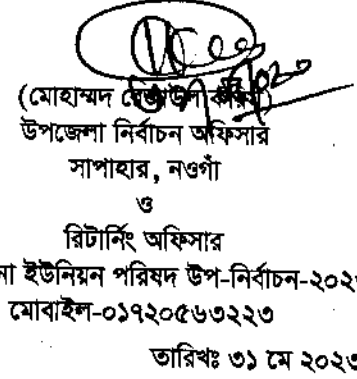 (মোহাম্মদ
উপজেলা নির্বাচন অফিসার
সাপাহার, নওগাঁ
ও
রিটার্নিং অফিসার
না ইউনিয়ন পরিষদ উপ-নির্বাচন-২০২৩
মোবাইল-০১৭২০৫৬৩২২৩
তারিখঃ ৩১ মে ২০২৩